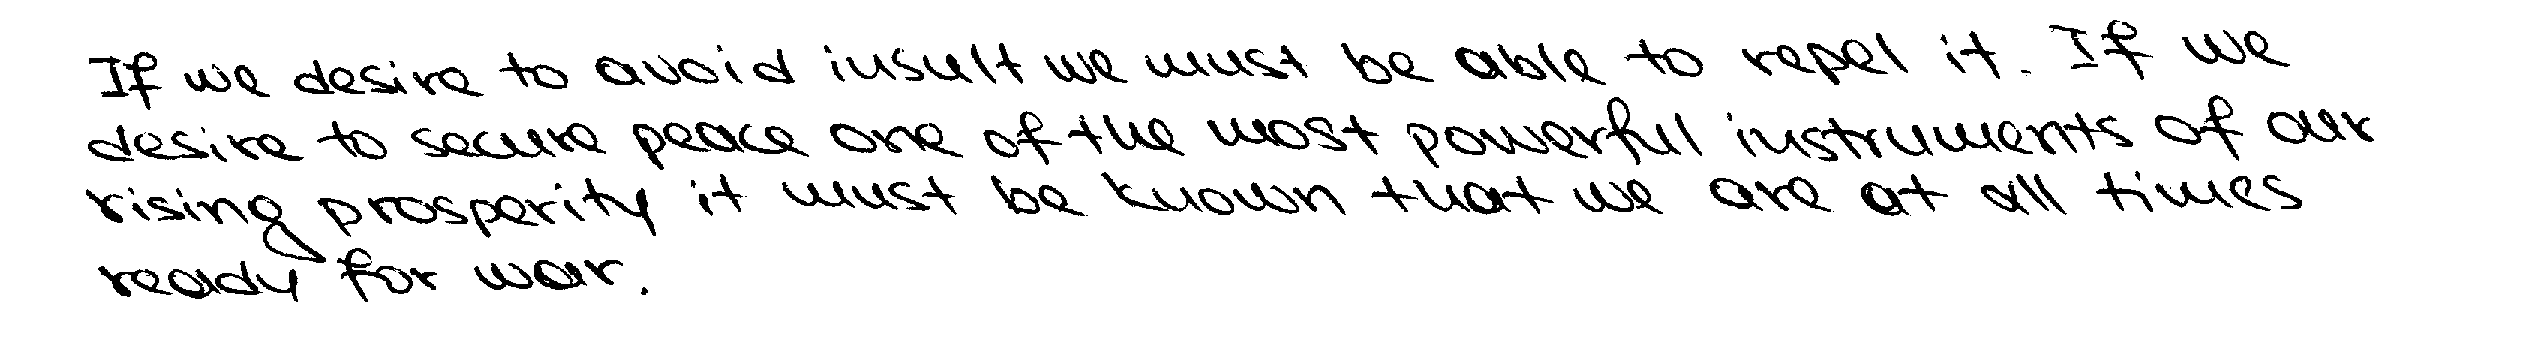 If we desire to avoid insult we must be able to repel it. If we
desire to secure peace one of the most powerful instruments of our
rising prosperity it must be known that we are at all times
ready for war.